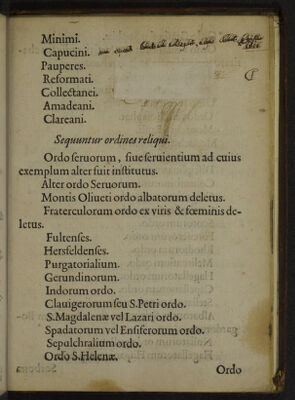 Minimi.
Capucini.
Pauperes.
Reformati.
Collectanei.
Amadeani.
Clareani.
Sequuntur ordines reliqui.
Ordo ſeruorum, ſiue ſeruientium ad cuius
exemplum alter fuit inſtitutus.
Alter ordo Seruorum.
Montis Oliueti ordo albatorum deletus.
Fraterculorum ordo ex viris & fœminis de-
letus.
Fultenſes.
Hersfeldenſes.
Purgatorialium.
Gerundinorum.
Indorum ordo.
Clauigerorum ſeu S. Petri ordo.
S. Magdalenæ vel Lazari ordo.
Spadatorum vel Enſiferorum ordo.
Sepulchralium ordo.
Ordo S. Helenæ.
Ordo